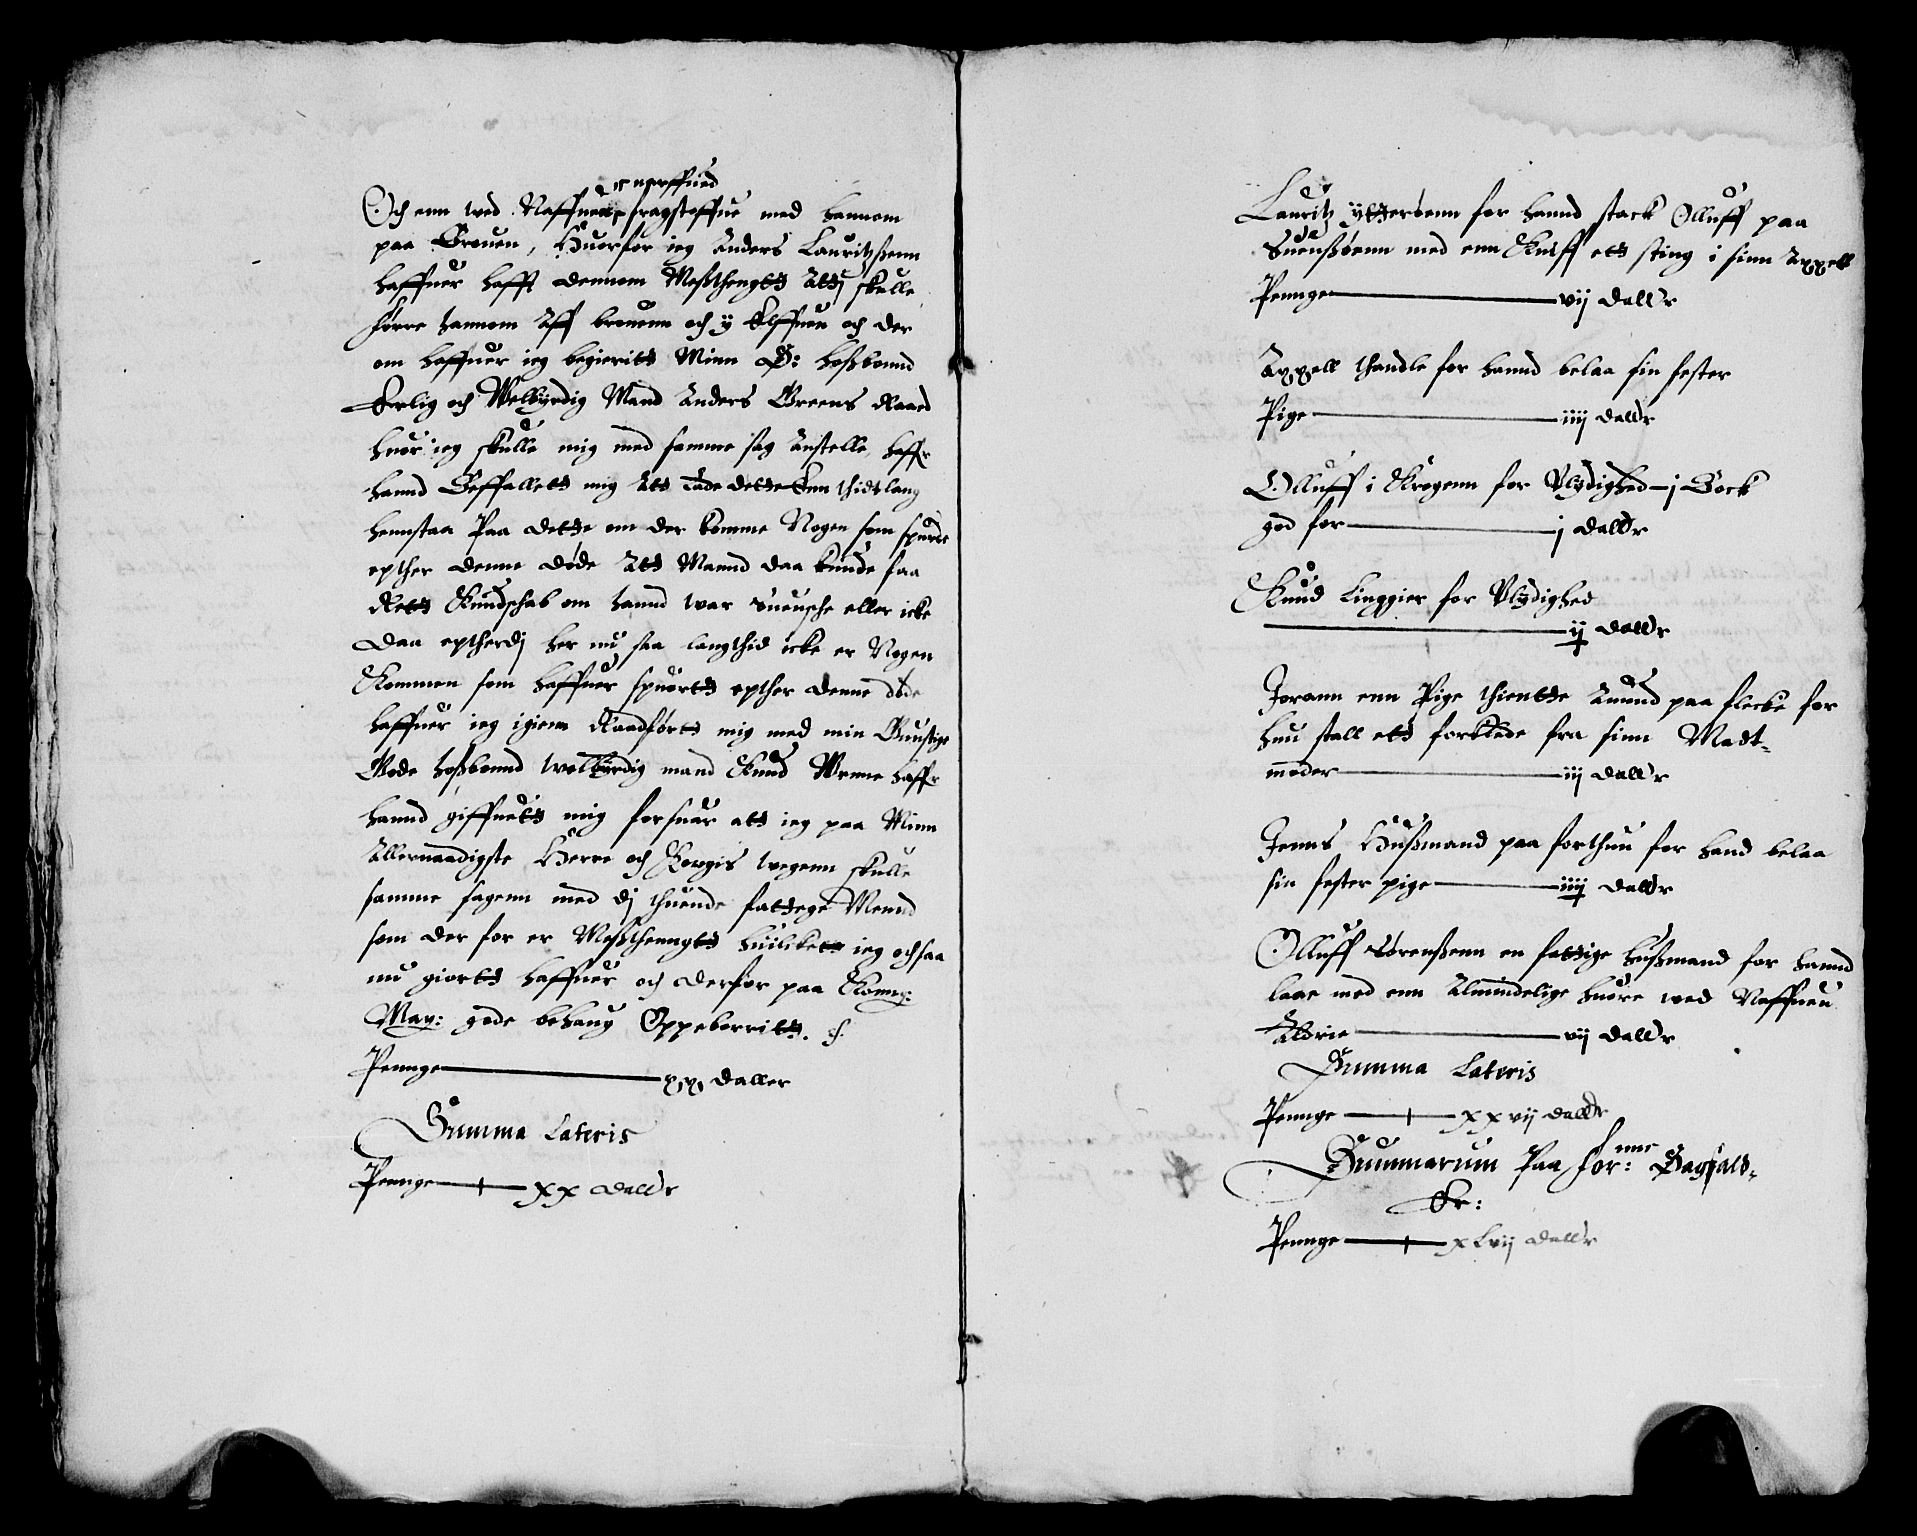 Och enn wed Naffnen fragstoffue med hannom
paa Brouen, Huorfor ieg Anders Lauritzßenn
haffuer hafft dennom Meßthengtt Attj skulle
førre hannom Aff brouenn och y Elffuen och der
om haffuer ieg begieritt Minn G: hoßbonnd
Erlig och Welbyrdig Mand Anders Greens Raad
huor ieg skulle mig med samme sag Anstelle, haffr
hannd Beffallett mig Att lade dette Enn thidtlang
hennstaa Paa dette om der komme Nogen som spurde
epther denne døde Att Mannd daa kunde faa
Rett Kundschab om hannd war Suensche eller icke
Daa eptherdj her nu saa langthid icke er Nogen
Kommen som haffuer spuortt epther denne døde
haffuer ieg igienn Raadførtt mig med min Gunstige
Gode hoßbonnd welbyrdig mand Knud Wrnne haffr
hannd giffuett mig forsuar att ieg paa Minn
Allernaadigste Herre och Kongis wegenn skulle
samme sagenn med dj thuende fattege Mennd
som der for er Meßthenngtt huilkett ieg ochsaa
nu giortt haffuer och derfor paa Konng:
May: gode behaug Oppeborritt.
Pennge xx daller
Summa Lateris
Pennge xx dallr
Lauritz ythersenn for hannd stack Olluff paa
Suenßøenn med enn Kniff ett sting i sinn Axxell
Pennge vij dallr
Axxell thandle for hannd belaa sin fester
Pige iiij dallr
Olluff i Krogenn for Vlydighed j Bock
god for j dallr
Knud Linggier for Vlydighed
ij dallr
Jorann enn Pige thientte Amund paa flecke for
hun stall ett forklede fra sinn Madt-
moder iij dallr
Jenns Hußmand paa forthuu for hand belaa
sin fester pige iiij dallr
Olluff Sørenßenn en fattige hußmand for hannd
laae med enn Almindelige huore wed Naffnen
Aldrie vij dallr
Summa Lateris
Pennge xxvij dallr
Summarum Paa for:nne Sagfald-
Er:
Pennge xLvij dallr